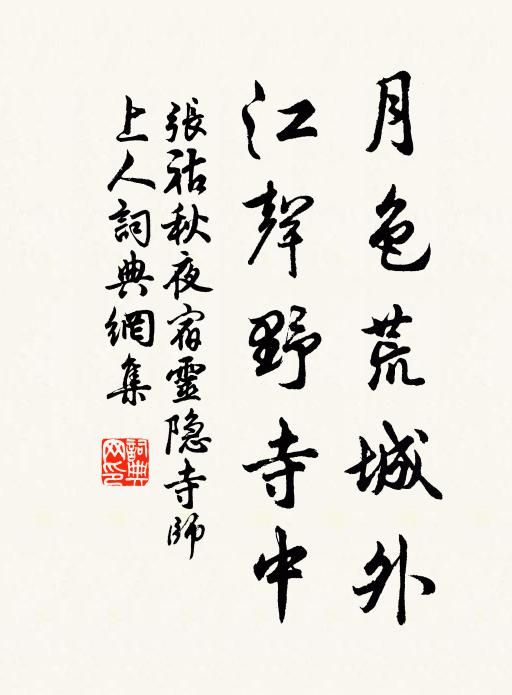 月色荒城外
江聲野寺中
張祜秋夜宿靈隐寺師
上人詞典網集
詞典网印